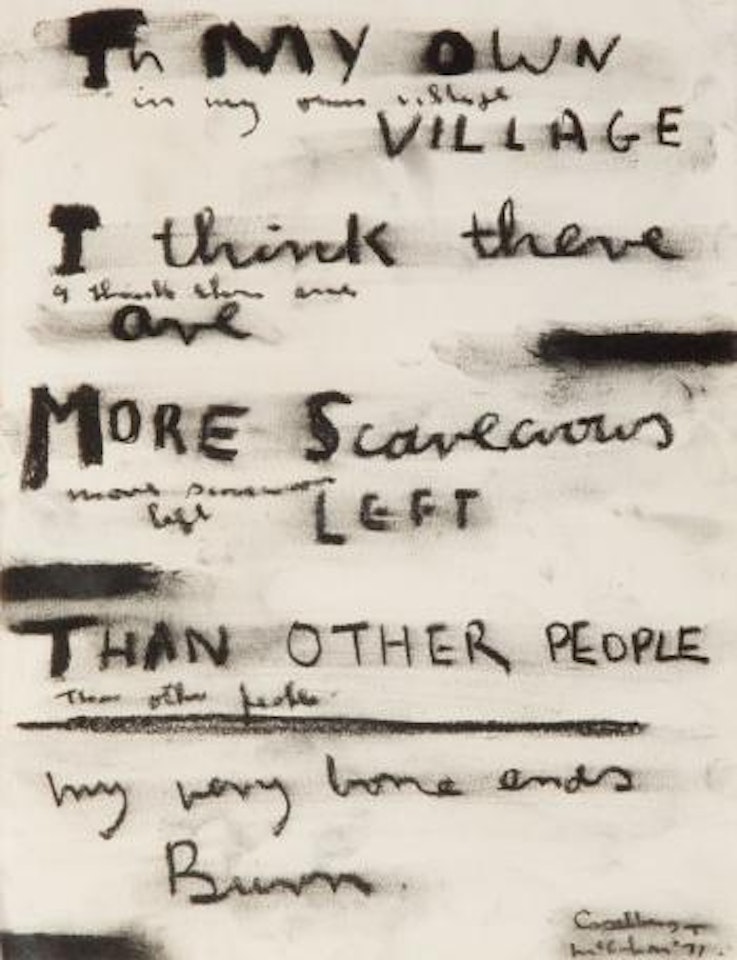 In MY OWN
in my own village
VILLAGE
I think there
I think there are
are
MORE Scarecrows
more scarecrows
left
LEFT
THAN OTHER PEOPLE
Than other people
my very bone ends
Burn.
Caselberg +
McCahon